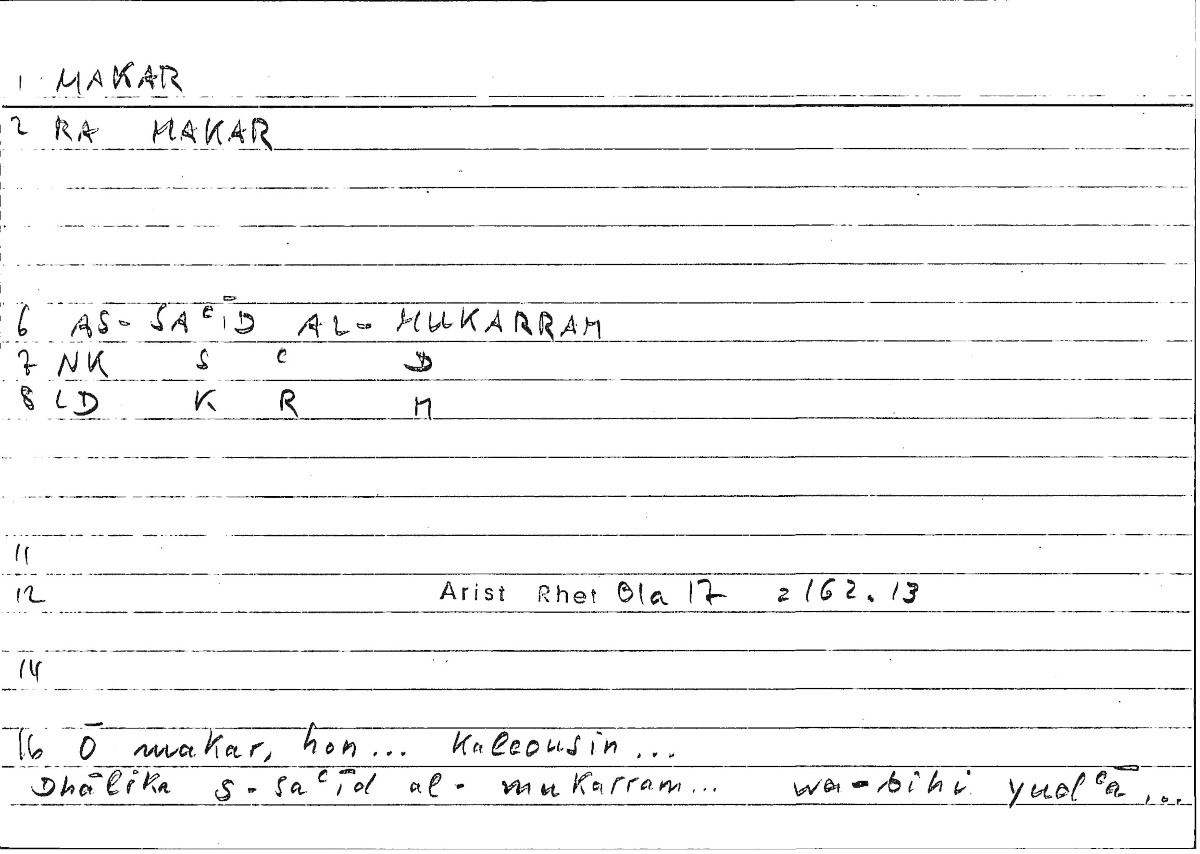 1 MAKAR
2 RA MAKAR
6 AS-SAʿĪD AL-MUKARRAM
7 NK S ʿ D
8 LD K R M
11
12 Arist Rhet 01a 17 = 162.13
14
16 Ō makar, hon... kaleousin...
Dhālika s-saʿīd al-mukarram... wa-bihi yudʿā...